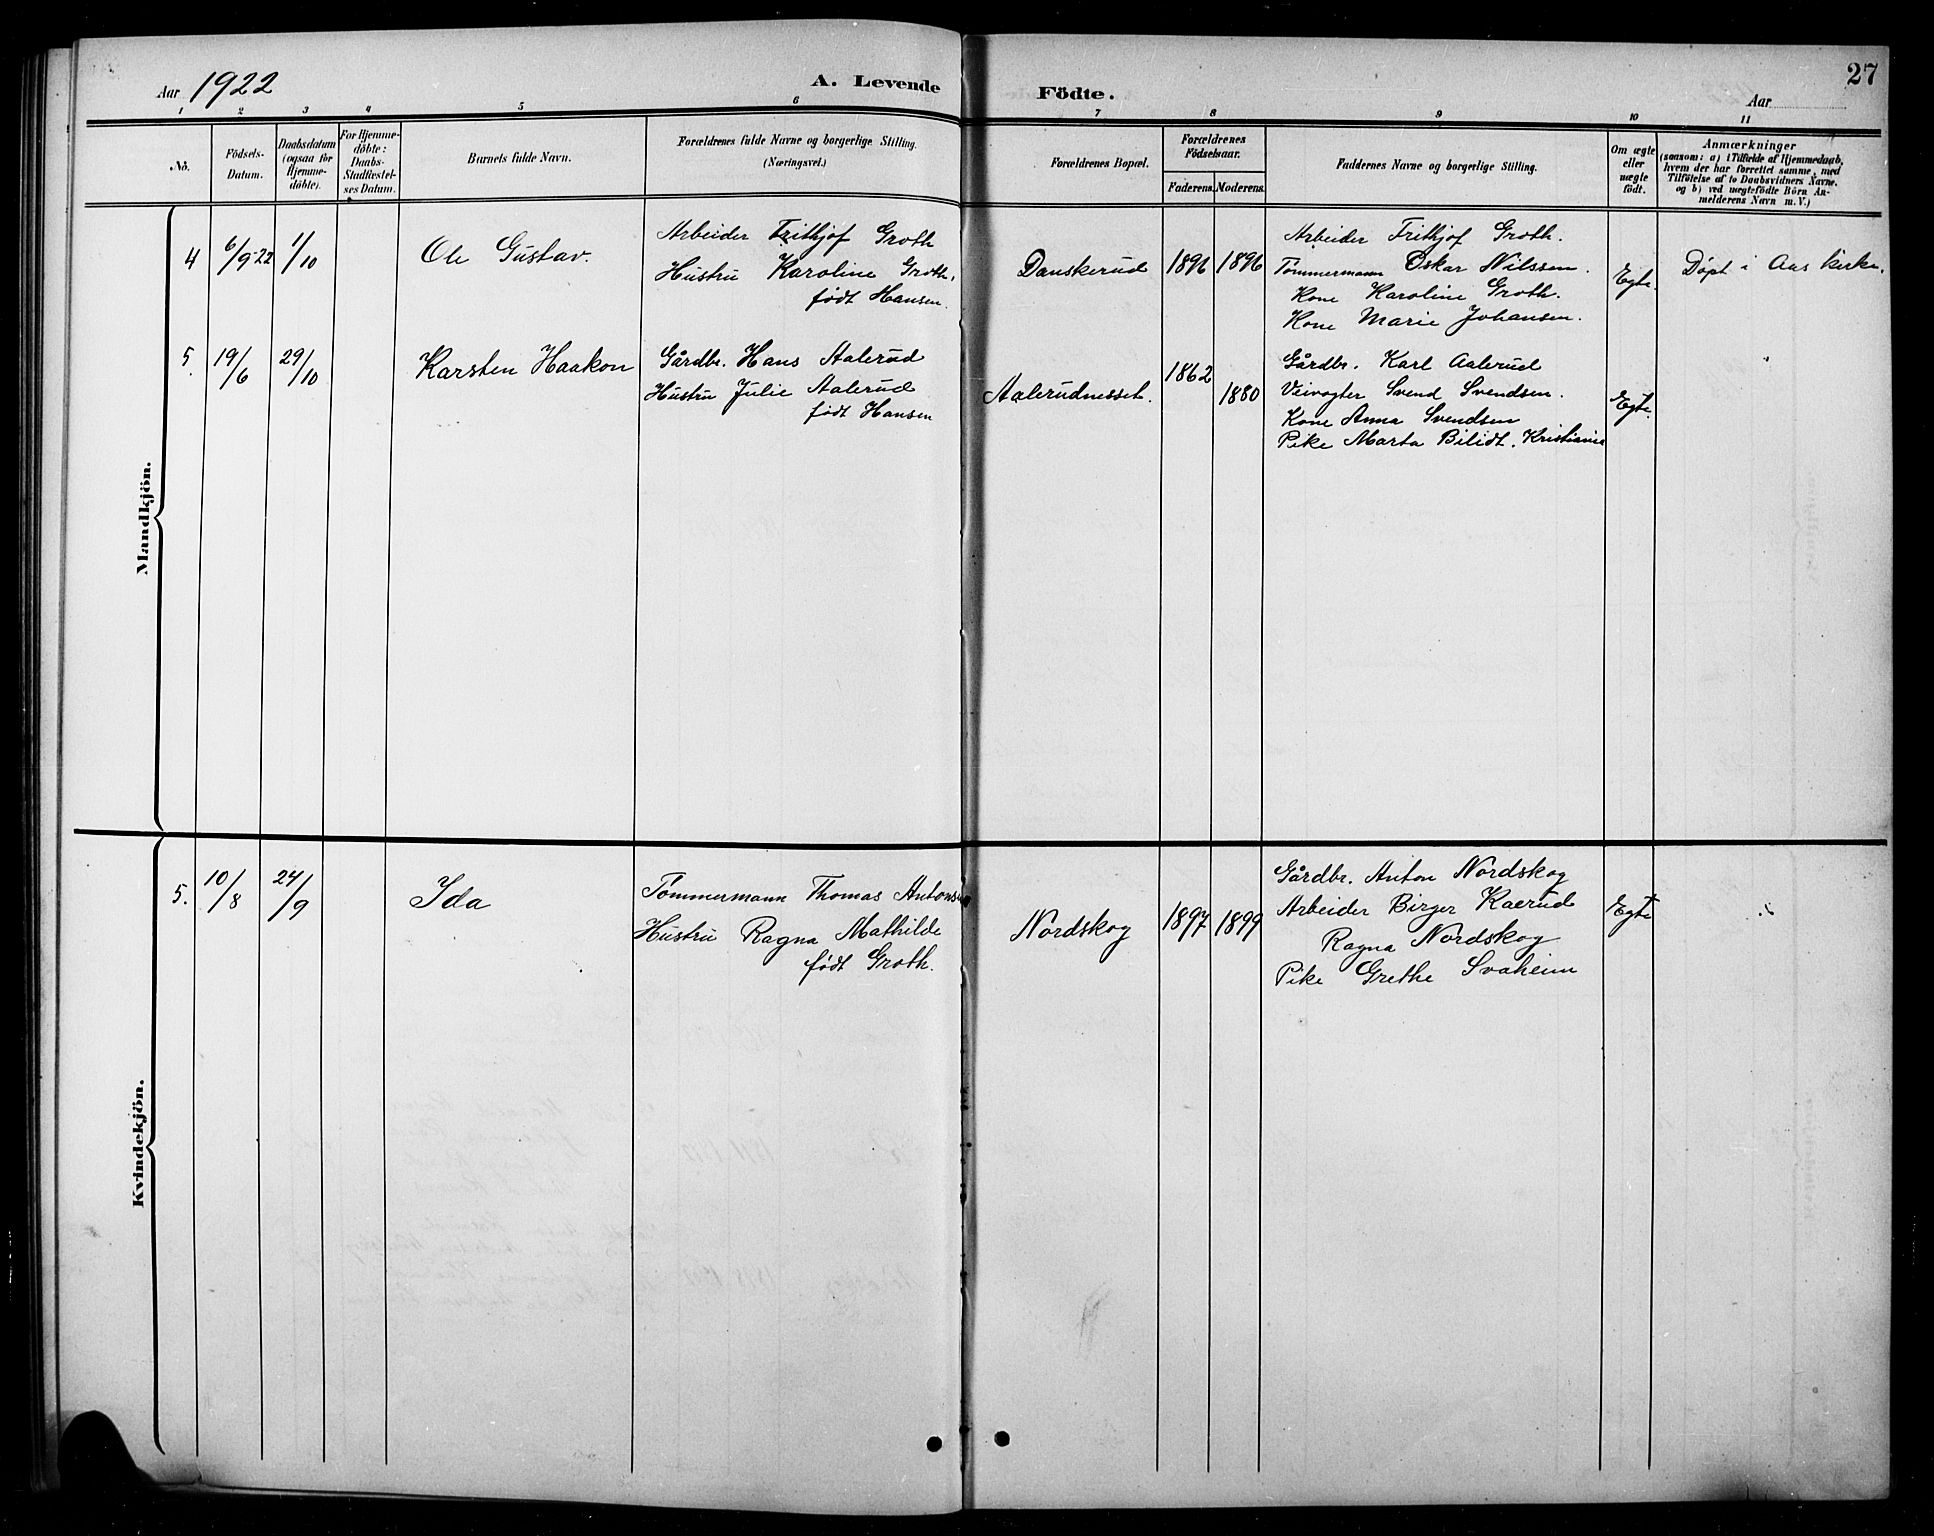 Aar 1922
A. Levende Födte.
Aar
27
1 2 3 4 5 6 7 8 9 10 11
No.
Födsels-
Datum.
Daabsdatum
(ogsaa for
Hjemme-
döbte).
For Hjemme-
döbte:
Daabs-
Stadfæstel-
ses Datum.
Barnets fulde Navn.
Forældrenes fulde Navne og borgerlige Stilling.
(Næringsvei.)
Forældrenes Bopæl.
Forældrenes
Födselsaar.
Faderens. Moderens.
Faddernes Navne og borgerlige Stilling.
Om ægte
eller
uægte
födt.
Anmærkninger
(saasom: a) i Tilfælde af Hjemmedaab,
hvem der har forrettet samme, med
Tilföielse af to Daabsvidners Navne.
og b) ved uægtefödte Börn An-
melderens Navn m. V.)
Mandkjön.
4 6/9-22 1/10
Ole Gustav.
Arbeider Frithjof Groth
Hustru Karoline Groth,
født Hansen.
Danskerud
1896
Arbeider Frithjof Groth.
Tømmermann Oskar Nilssen.
Kone Karoline Groth.
Kone Marie Johansen.
Egte.
Døpt i Aas kirke.
5. 19/6 29/10
Karsten Haakon
Gårdbr. Hans Aalerud
Hustru Julie Aalerud
født Hansen
Aalerudnesset.
1862 1880
Gårdbr. Karl Aalerud
Veivogter Svend Svendsen.
Kone Anna Svendsen
Pike Marta Bilidt. Kristiania
Egte.
Kvindekjön.
5. 10/8 24/9
Ida
Tømmermann Thomas
Hustru Ragna Mathilde
født Groth.
Nordskog
1897 1899
Gårdbr. Anton Nordskog
Arbeider Birger Kaerud
Ragna Nordskog
Pike Grethe Svaheim
Egte